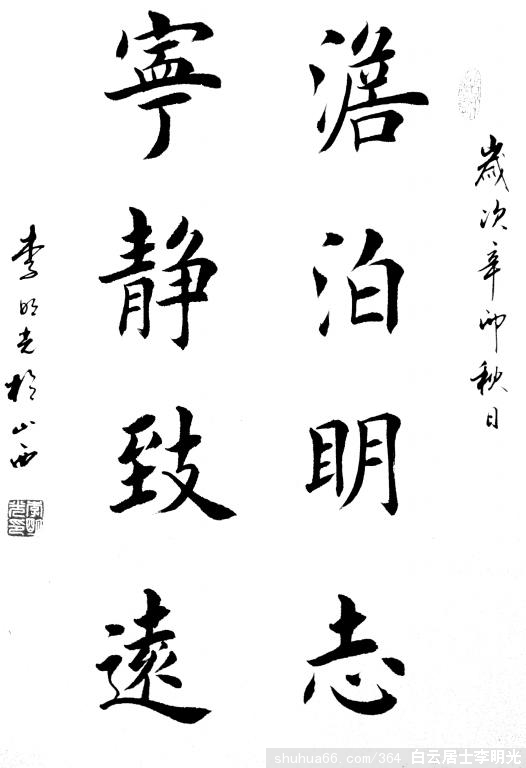 歲次辛卯秋日
澹泊明志
寧靜致遠
李明光於山西
shuhua66.com/364 白云居士李明光